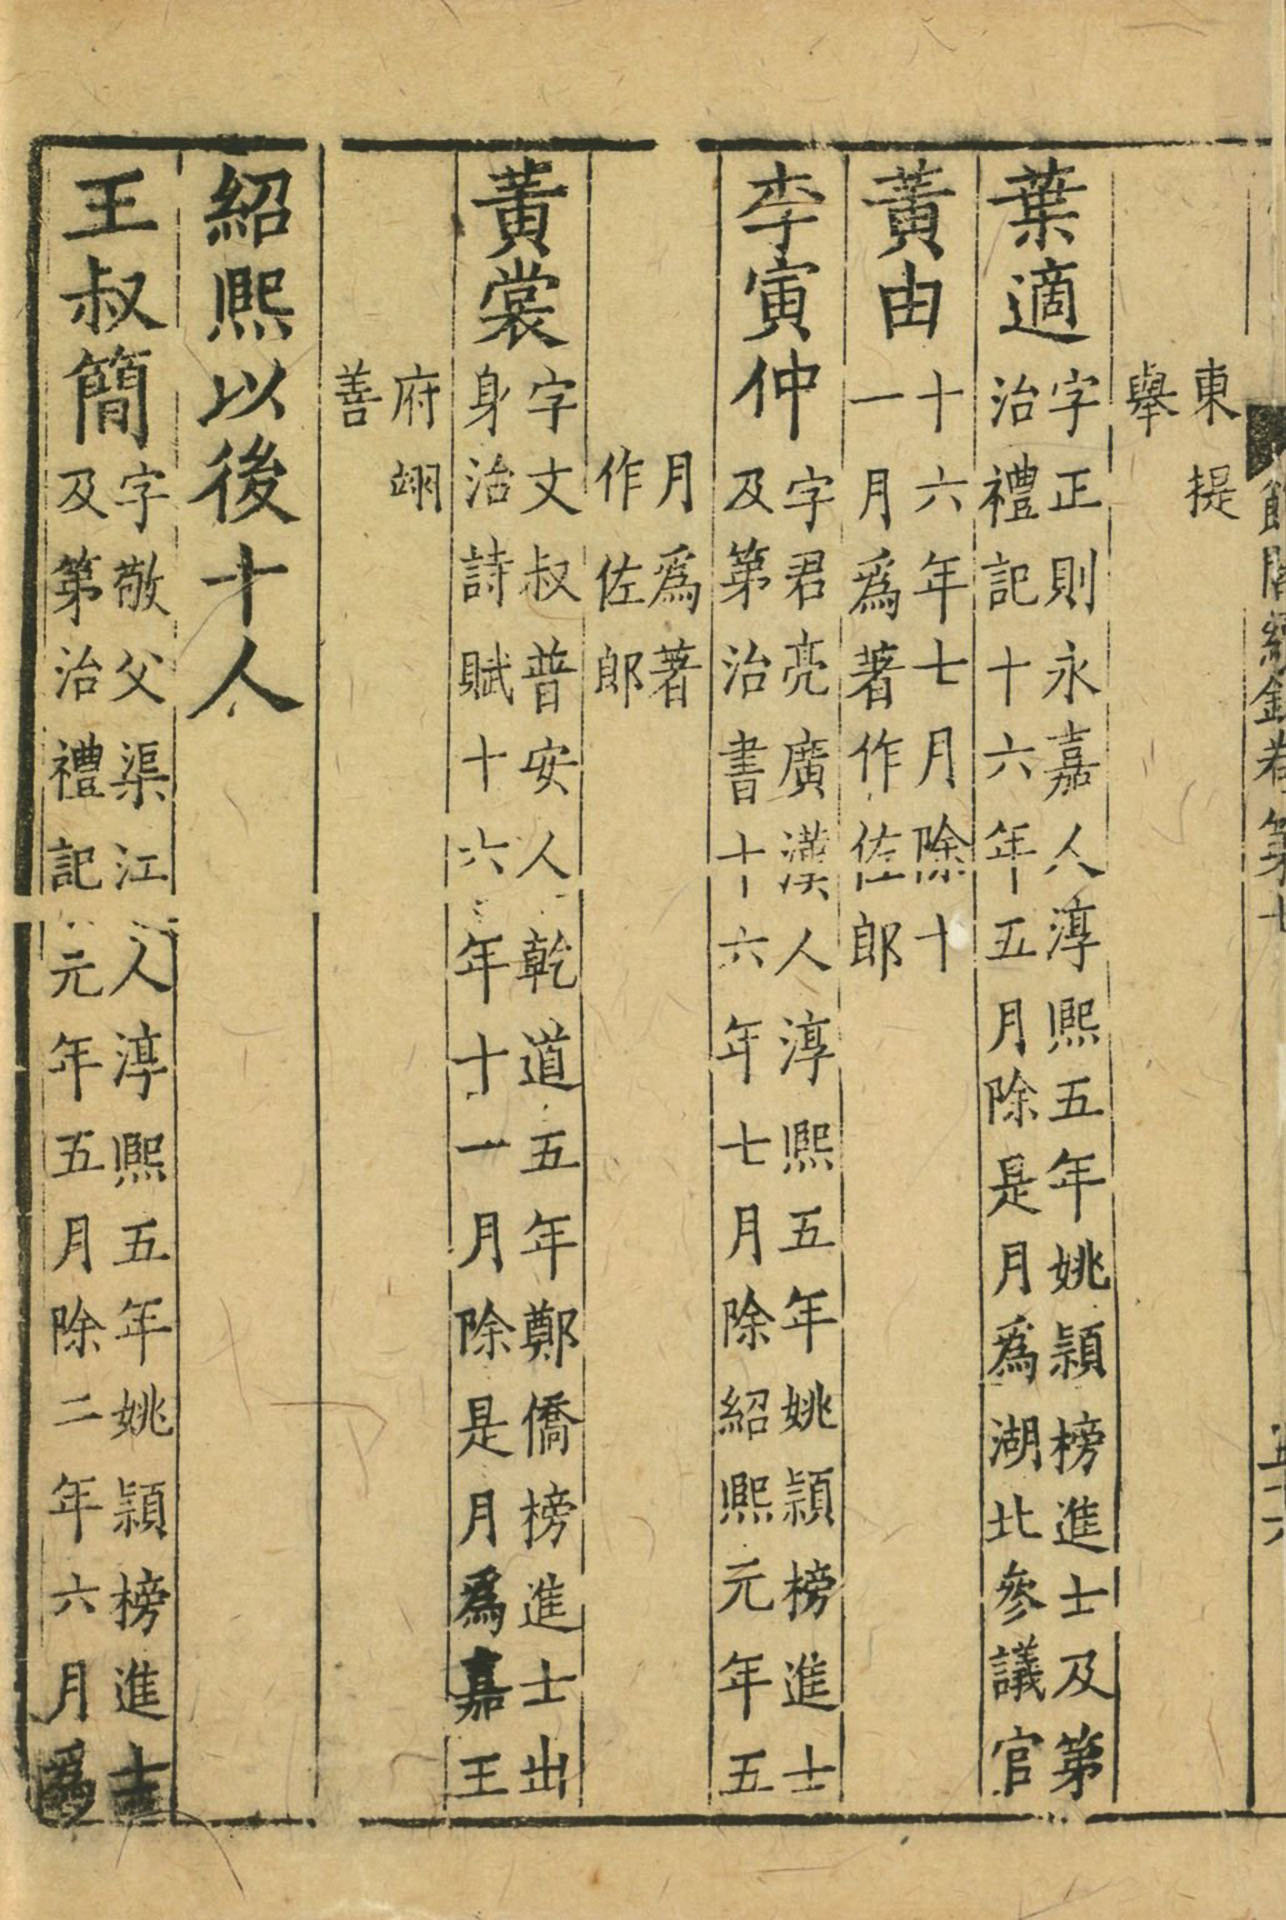 館閣續錄卷第七
五十六
東提
舉
葉適字正則永嘉人淳熙五年姚頴榜進士及第
治禮記十六年五月除是月爲湖北參議官
黃由十六年七月除十
一月爲著作佐郎
李寅仲字君亮廣漢人淳熙五年姚頴榜進士
及第治書十六年七月除紹熙元年五
月爲著
作佐郎
黃裳字文叔普安人乾道五年鄭僑榜進士出
身治詩賦十六年十一月除是月爲嘉王
府翊
善
紹熙以後十人
王叔簡字敬父渠江人淳熙五年姚頴榜進士
及第治禮記元年五月除二年六月爲